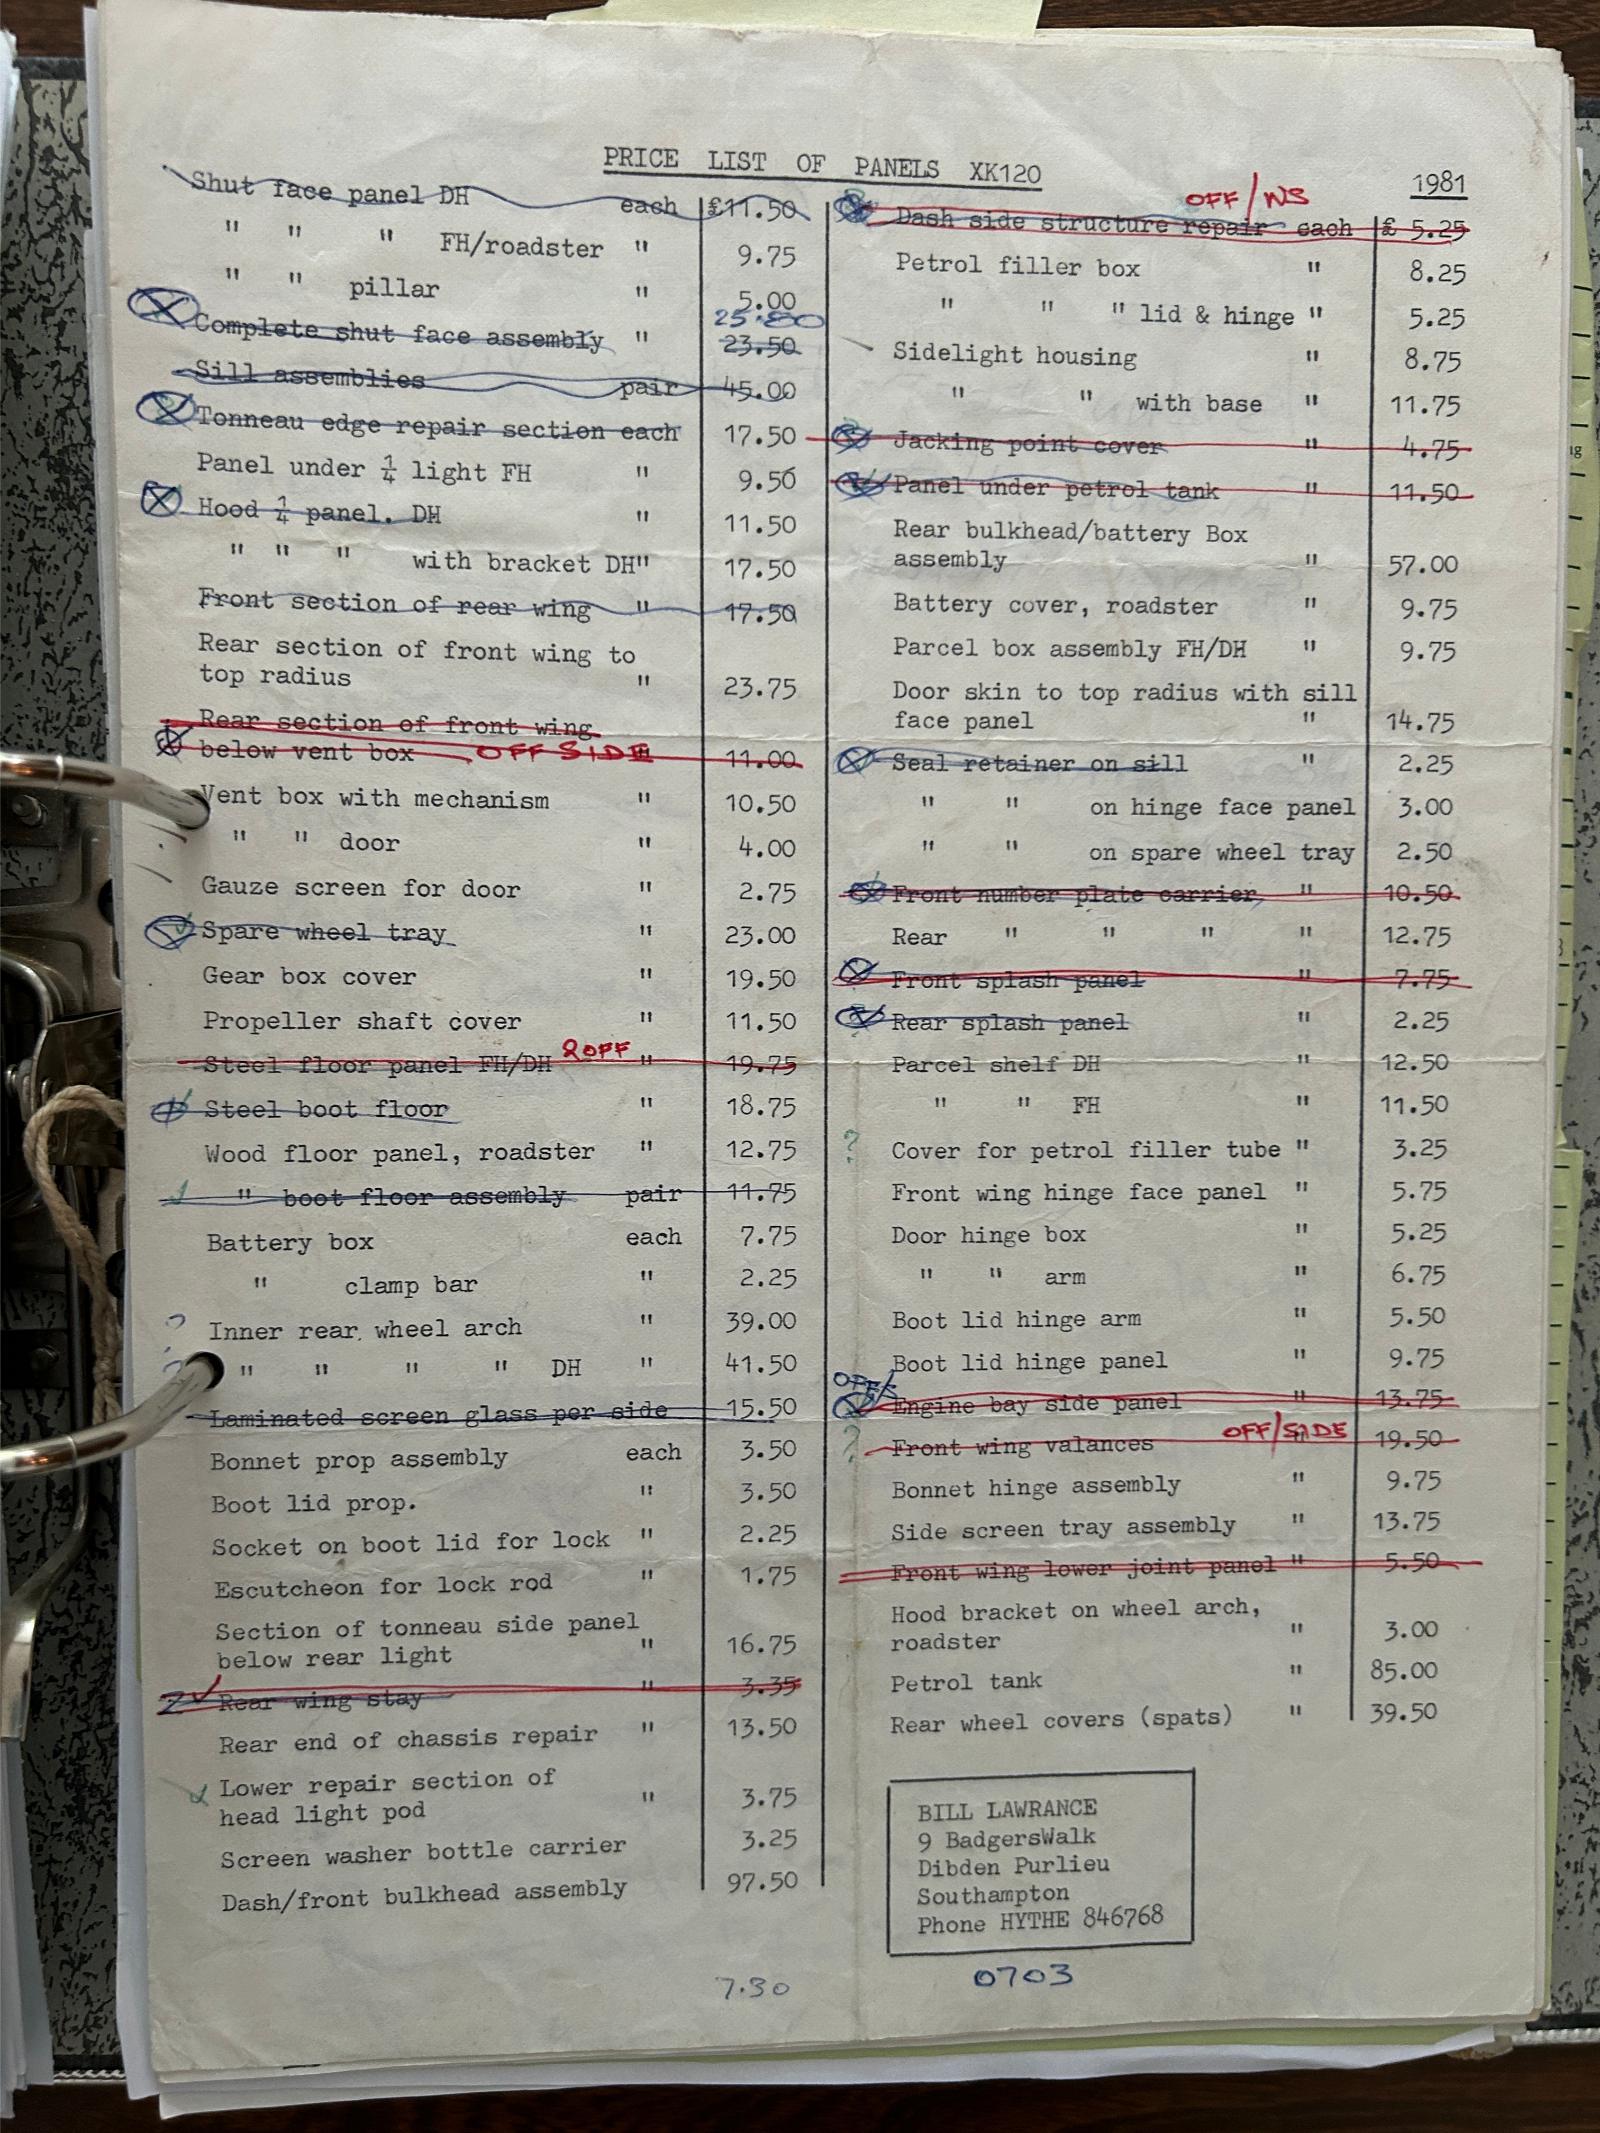 PRICE LIST OF PANELS XK120
1981
Shut face panel DH each £11.50
" " " FH/roadster " 9.75
" " pillar " 5.00
25.80
Complete shut face assembly " 23.50
Sill assemblies pair 45.00
Tonneau edge repair section each 17.50
Panel under 1/4 light FH " 9.50
Hood 1/4 panel. DH " 11.50
" " " with bracket DH" 17.50
Front section of rear wing " 17.50
Rear section of front wing to
top radius " 23.75
Rear section of front wing
below vent box OFF SIDE " 11.00
Vent box with mechanism " 10.50
" " door " 4.00
Gauze screen for door " 2.75
Spare wheel tray " 23.00
Gear box cover " 19.50
Propeller shaft cover " 11.50
Steel floor panel FH/DH 2 OFF " 19.75
Steel boot floor " 18.75
Wood floor panel, roadster " 12.75
" boot floor assembly pair 11.75
Battery box each 7.75
" clamp bar " 2.25
? Inner rear wheel arch " 39.00
? " " " " DH " 41.50
Laminated screen glass per side 15.50
Bonnet prop assembly each 3.50
Boot lid prop. " 3.50
Socket on boot lid for lock " 2.25
Escutcheon for lock rod " 1.75
Section of tonneau side panel
below rear light " 16.75
2 Rear wing stay " 3.35
Rear end of chassis repair " 13.50
Lower repair section of
head light pod " 3.75
Screen washer bottle carrier 3.25
Dash/front bulkhead assembly 97.50
7.30
OFF/NS
Dash side structure repair each £ 5.25
Petrol filler box " 8.25
" " " lid & hinge " 5.25
Sidelight housing " 8.75
" " with base " 11.75
Jacking point cover " 4.75
Panel under petrol tank " 11.50
Rear bulkhead/battery Box
assembly " 57.00
Battery cover, roadster " 9.75
Parcel box assembly FH/DH " 9.75
Door skin to top radius with sill
face panel " 14.75
Seal retainer on sill " 2.25
" " on hinge face panel 3.00
" " on spare wheel tray 2.50
Front number plate carrier " 10.50
Rear " " " " 12.75
Front splash panel " 7.75
Rear splash panel " 2.25
Parcel shelf DH " 12.50
" " FH " 11.50
? Cover for petrol filler tube " 3.25
Front wing hinge face panel " 5.75
Door hinge box " 5.25
" " arm " 6.75
Boot lid hinge arm " 5.50
Boot lid hinge panel " 9.75
Engine bay side panel " 13.75
OFF/SIDE
? Front wing valances " 19.50
Bonnet hinge assembly " 9.75
Side screen tray assembly " 13.75
Front wing lower joint panel " 5.50
Hood bracket on wheel arch,
roadster " 3.00
Petrol tank " 85.00
Rear wheel covers (spats) " 39.50
BILL LAWRANCE
9 BadgersWalk
Dibden Purlieu
Southampton
Phone HYTHE 846768
0703